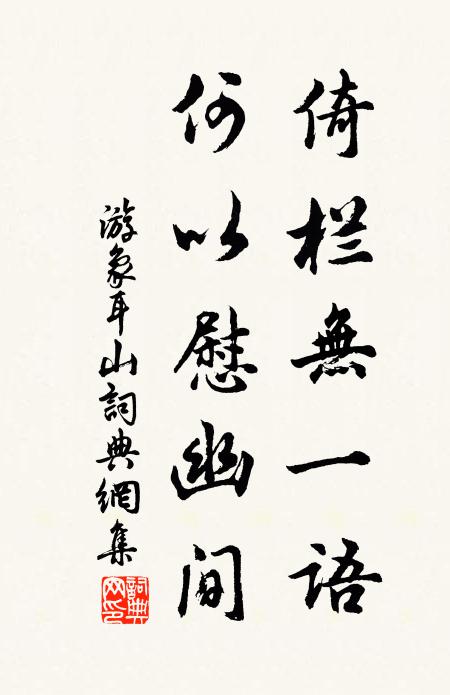 倚栏無一語
何以慰幽間
游象耳山詞典網集
詞典
网印